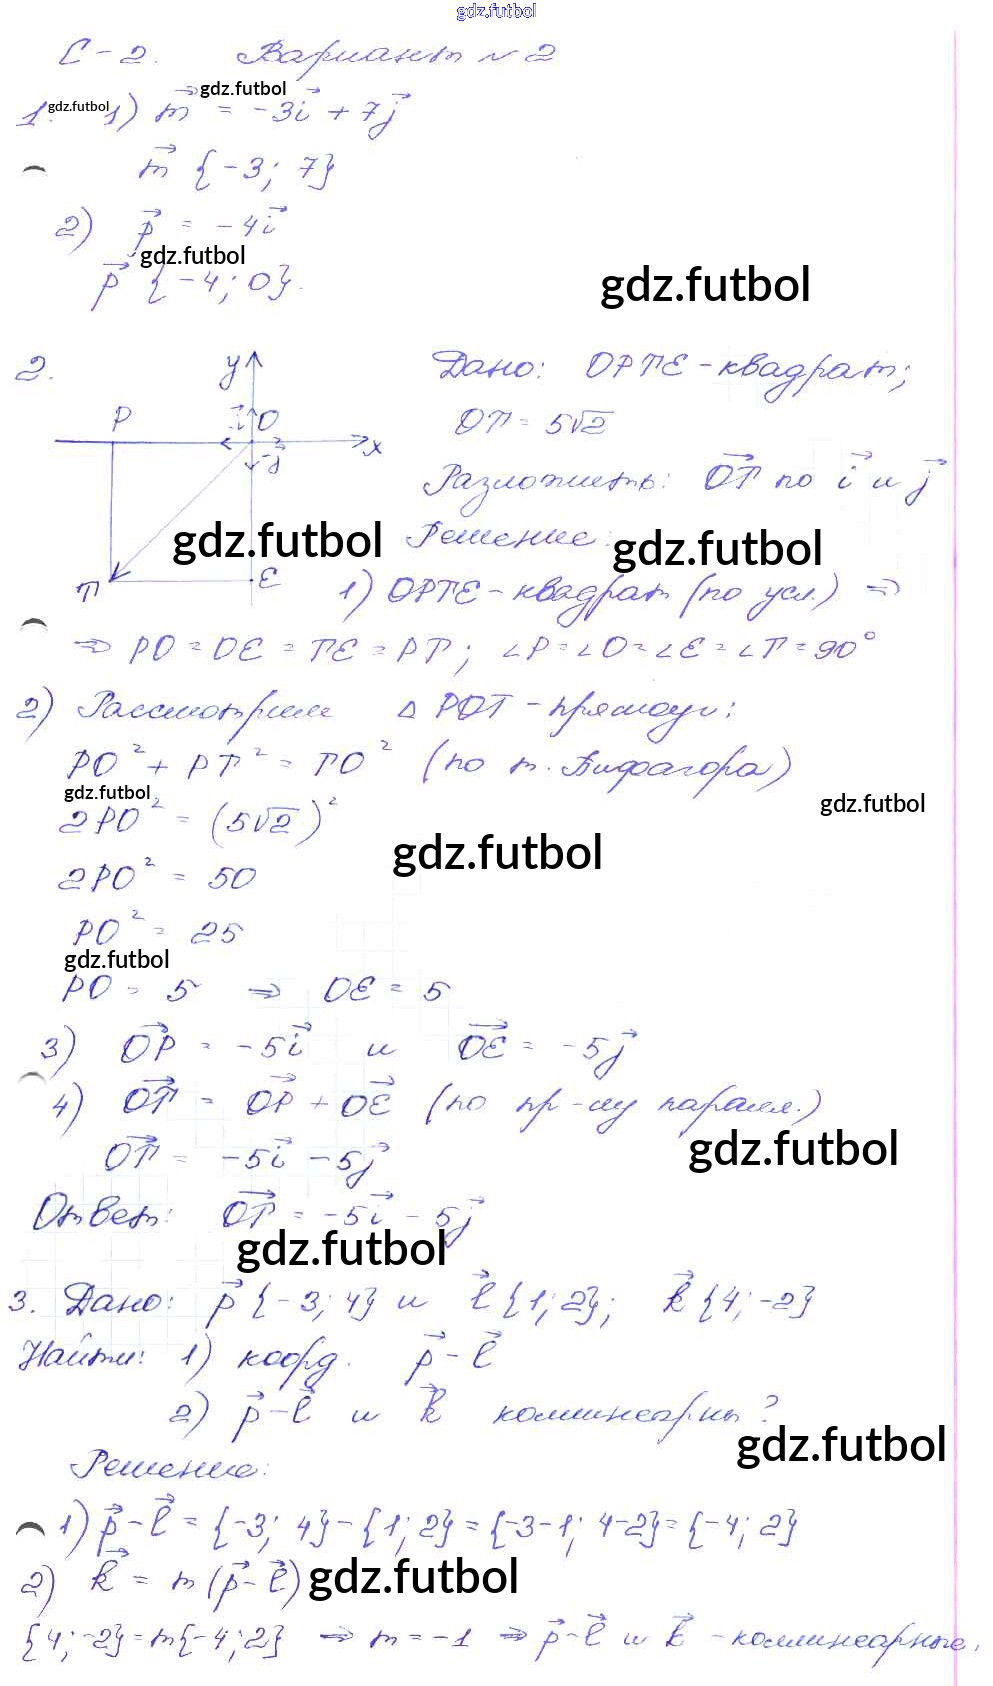 gdz.futbol
С-2. Вариант №2
gdz.futbol
1. gdz.futbol 1) m⃗ = -3i⃗ + 7j⃗
m⃗ {-3; 7}
2) p⃗ = -4i⃗
gdz.futbol
p⃗ {-4; 0}.
gdz.futbol
2. y Дано: ОРТЕ - квадрат;
P i⃗ O x
j⃗
ОТ = 5√2
Разложить: ОТ⃗ по i⃗ и j⃗
gdz.futbol Решение: gdz.futbol
T E
1) ОРТЕ - квадрат (по усл.) ⇒
⇒ PO = OE = TE = PT; ∠P = ∠O = ∠E = ∠T = 90°
2) Рассмотрим △ POT - прямоуг:
PO² + PT² = TO² (по т. Пифагора)
gdz.futbol gdz.futbol
2PO² = (5√2)²
gdz.futbol
2PO² = 50
PO² = 25
gdz.futbol
PO = 5 ⇒ OE = 5
3) OP⃗ = -5i⃗ и OE⃗ = -5j⃗
4) OT⃗ = OP⃗ + OE⃗ (по пр-лу паралл.)
gdz.futbol
OT⃗ = -5i⃗ - 5j⃗
Ответ: OT⃗ = -5i⃗ - 5j⃗
gdz.futbol
3. Дано: p⃗ {-3; 4} и l⃗ {1; 2}; k⃗ {4; -2}
Найти: 1) коорд. p⃗ - l⃗
2) p⃗ - l⃗ и k⃗ коллинеарны?
gdz.futbol
Решение:
1) p⃗ - l⃗ = {-3; 4} - {1; 2} = {-3-1; 4-2} = {-4; 2}
2) k⃗ = m (p⃗ - l⃗) gdz.futbol
{4; -2} = m{-4; 2} ⇒ m = -1 ⇒ p⃗ - l⃗ и k⃗ - коллинеарные.